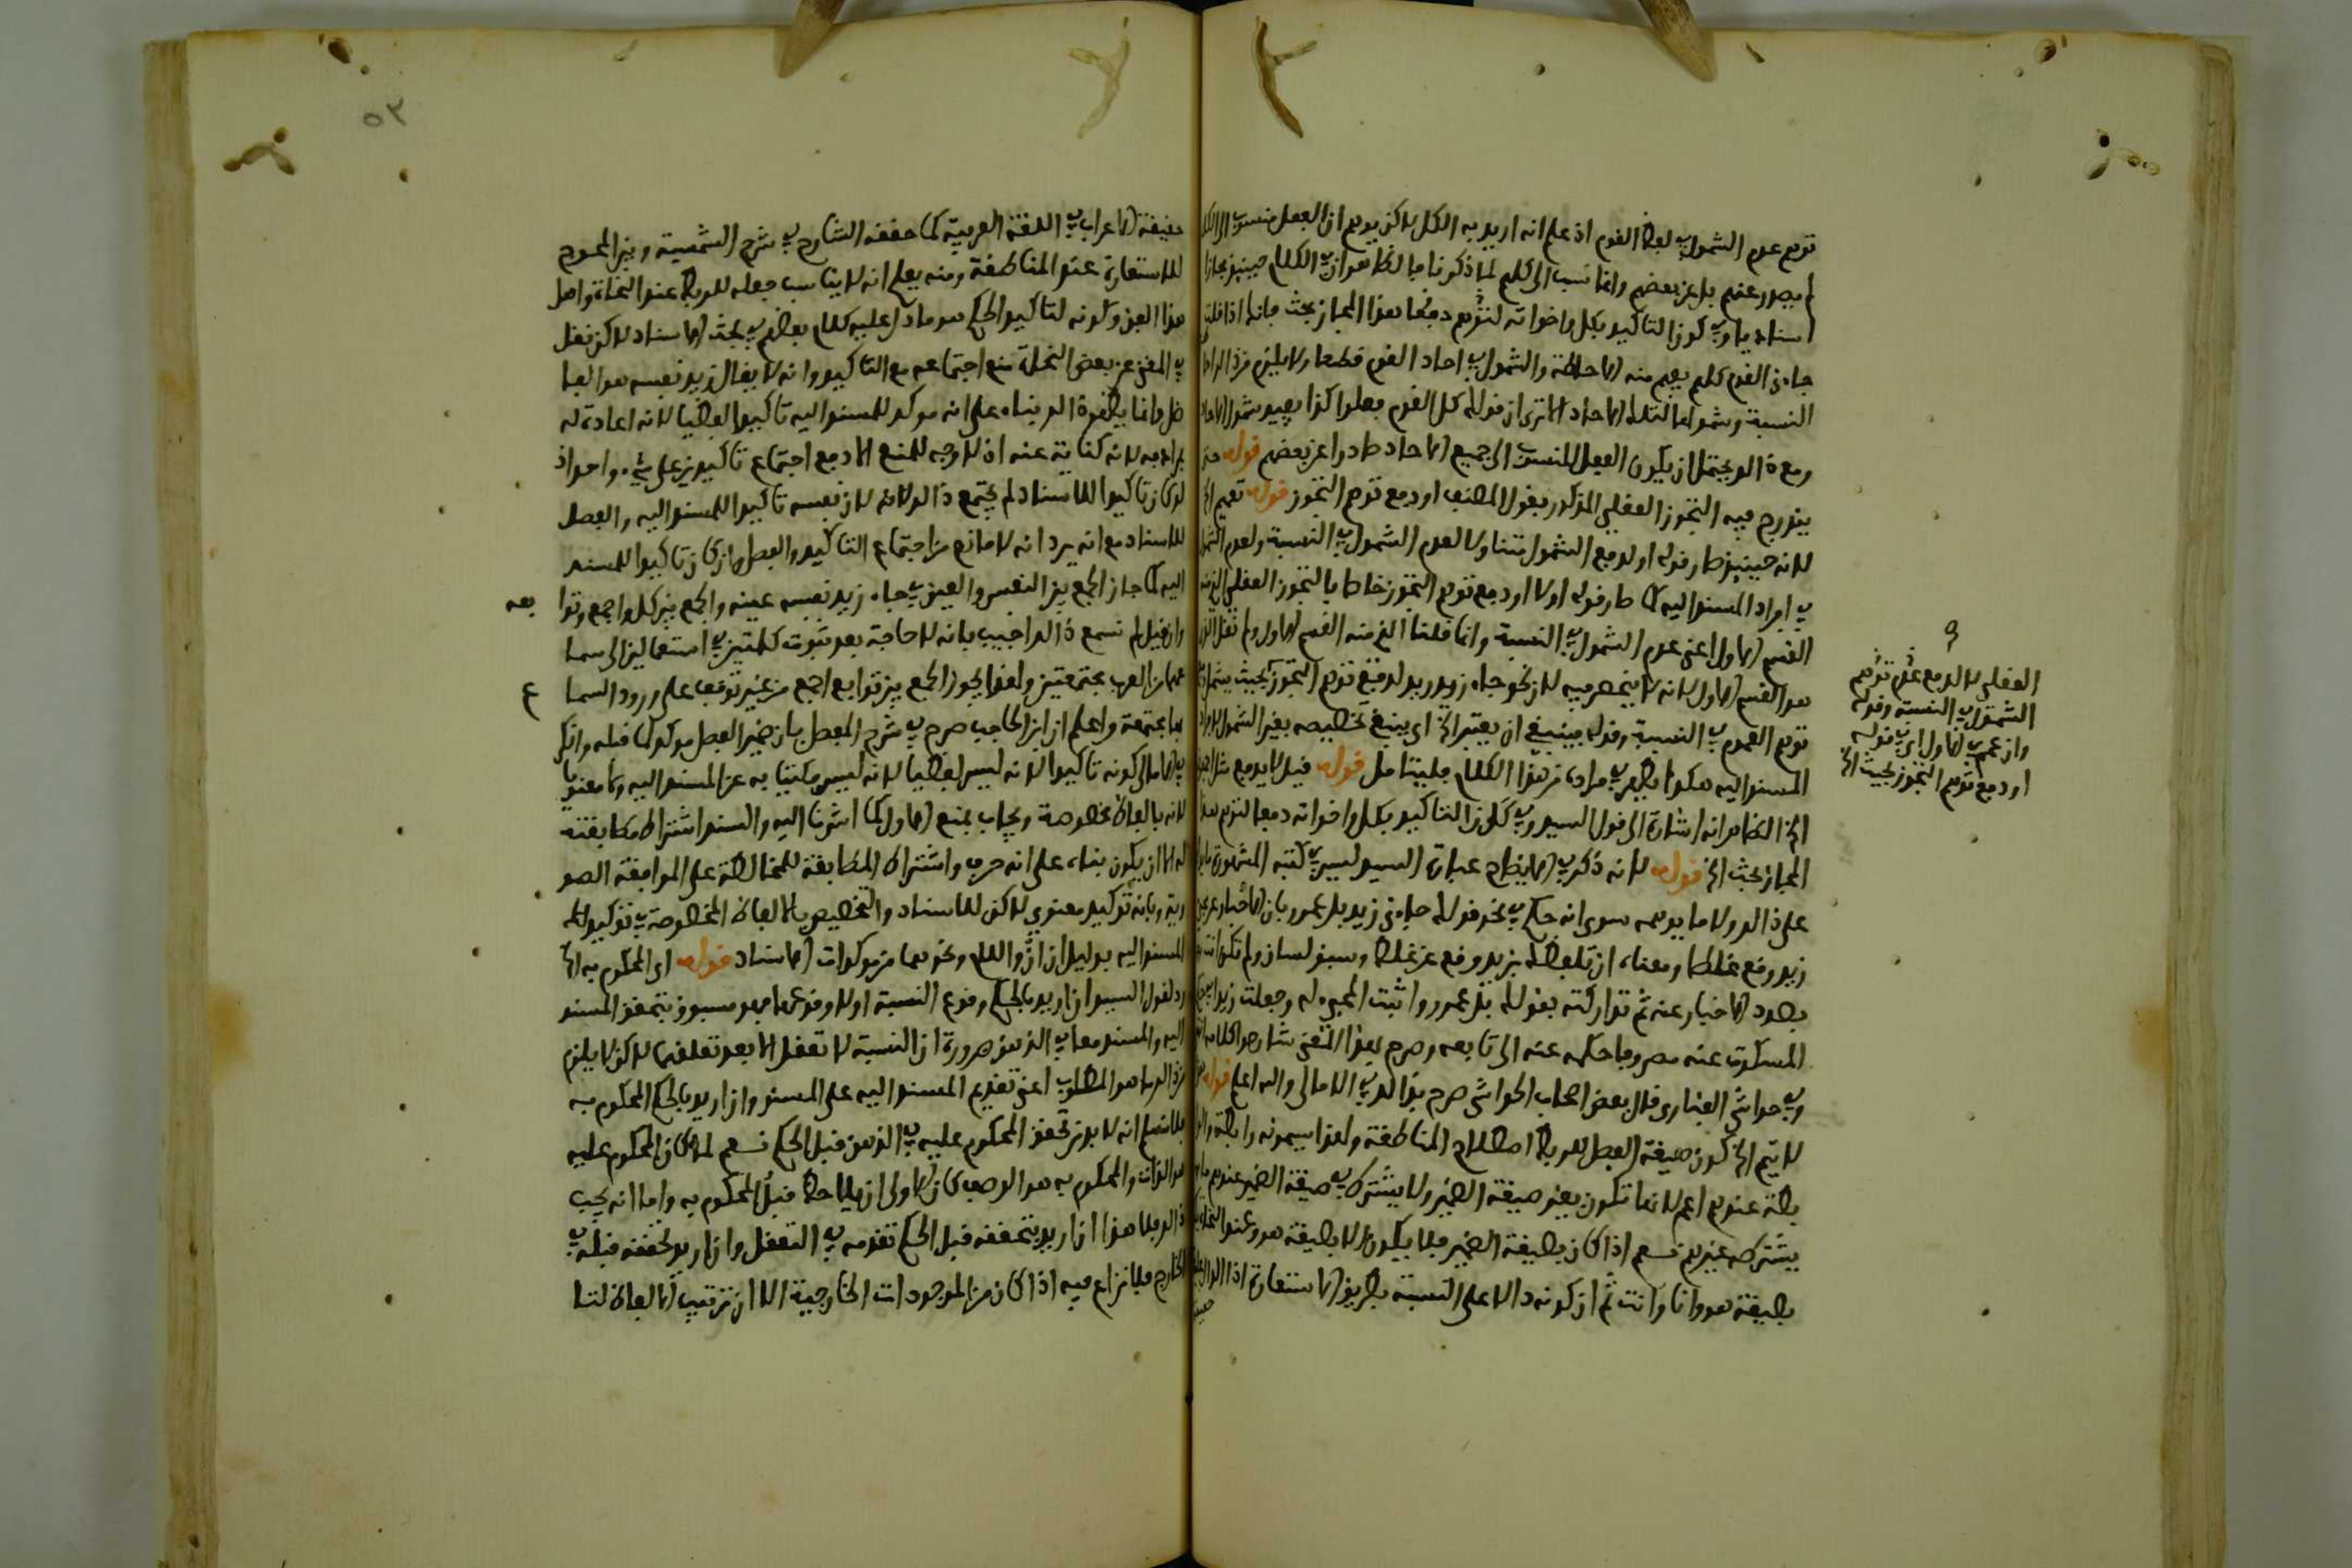 توهم عدم الشمول في لفظ القوم اذ علم انه اريد به الكل لاكن يوهم ان الفعل منسوب الى الكل
لم يصدر عنهم بل عن بعضهم وانما نسب الى كلهم لما ذكرنا فالظاهر ان في الكلام حينئذ مجازا
اسناديا وفي كون التاكيد بكل واخواته لتوهم دفع هذا المجاز بحث فانك اذا قلت
جاءني القوم كلهم يفهم منه الاحاطة والشمول في احاد القوم قطعا ولا يلزم من ذالك
النسبة وشمولها لتلك الاحاد الا ترى ان قولك كل القوم فعلوا كذا يفيد شمول الاحاد
ومع ذالك يحتمل ان يكون الفعل المنسوب الى جميع الاحاد صادرا عن بعضهم قوله
يندرج فيه التجوز العقلي المذكور بقول المصنف او دفع توهم التجوز قوله تعميم الخ
لانه حينئذ صار قوله او لدفع الشمول متناولا لعدم الشمول في النسبة ولعدم الشمول
في افراد المسند اليه كما صار قوله اولا او دفع توهم التجوز خاصا بالتجوز العقلي
القسم الاول اعني عدم الشمول في النسبة وانما قلنا الخ منه القسم الاول ولم نقل
هو القسم الاول لانه لا ينحصر فيه لان نحو جاء زيد زيد لدفع توهم التجوز بحيث يشمل
توهم العموم في النسبة وقوله فينبغي ان يعتبر الخ اي ينبغي تخصيصه بغير الشمول
المسند اليه هكذا يظهر في مراده من هذا الكلام فليتامل قوله قيل لا يدفع مثل
الخ الظاهر انه اشارة الى قول السيد وفي كون التاكيد بكل واخواته دفعا لتوهم هذا
المجاز بحث الخ قوله لانه ذكر في الايضاح عبارة السيد ليس في كتبه المشهورة
على ذالك ولا ما يوهمه سوى انه حكم في نحو قولك جاءني زيد بل عمرو بان الاخبار عن
زيد وقع غلطا ومعناه ان تلفظك بزيد وقع عن غلط وسبق لسان ولم تكن انت
بصدد الاخبار عنه ثم تداركته بقولك بل عمرو واثبت المجيء له وجعلت زيدا في حكم
المسكوت عنه مصروفا حكمه عنه الى تابعه وصرح بهذا المعنى شارحوا كلامه
وفي حواشي الفنارى قال بعض اصحاب الحواشي صرح بذالك في الامالي والله اعلم قوله
لا يتم الخ كون صيغة الفصل للربط اصطلاح المناطقة ولهذا يسمونه رابطة
بطة عندهم اعم لانها تكون بغير صيغة الضمير ولا يشترك في صيغة الضمير عندهم
يشترك غيرهم نعم اذا كان بصيغة الضمير فلا يكون الا بصيغة هو وعند النحاة
بصيغة هو وانا وانت ثم ان كونه دالا على النسبة بطريق الاستعارة اذ الدال
العقلي لا لدفع عدم توهم
الشمول في النسبة وقوله
وان عمم في الاول اي في قوله
او دفع توهم التجوز بحيث الخ
٥٣
حقيقة الاعراب في اللغة العربية كما حققه الشارح في شرح الشمسية وبين المحوج
للاستعارة عند المناطقة ومنه يعلم انه لا يناسب جعله للربط عند النحاة واهل
هذا الفن وكونه لتاكيد الحكم هو ما دل عليه كلام بعضهم في بحث الاسناد لاكن نقل
في المغني عن بعض النحاة منع اجتماعه مع التاكيد وانه لا يقال زيد نفسه هو الفا
ضل وانما يظهر ذالك بناء على انه موكد للمسند اليه تاكيدا لفظيا لانه اعادة له
بمرادفه لانه كناية عنه اذ لا وجه للمنع الا دفع اجتماع تاكيدين على شيء واحد اذ
لو كان تاكيدا للاسناد لم يجتمع ذالك لانه لان نفسه تاكيد للمسند اليه والفصل
للاسناد مع انه يرد انه لا مانع من اجتماع التاكيد والفصل وان كان تاكيدا للمسند
اليه كما جاز الجمع بين النفس والعين في جاء زيد نفسه عينه والجمع بين كل واجمع وتوا بعه
وان قيل لم نسمع ذالك اجيب بانه لا حاجة بعد ثبوت كلمتين في استعمالين الى سما
عهما من العرب مجتمعتين ولهذا يجوز الجمع بين توابع اجمع من غير توقف على ورود السما ع
بها مجتمعة واعلم ان ابن الحاجب صرح في شرح المفصل بان ضمير الفصل موكد لما قبله وانكر
في الامالي كونه تاكيدا لانه ليس لفظيا لانه ليس مكتنيا به عن المسند اليه ولا معنويا
لانه بالفاظ مخصوصة ويجاب بمنع الاول كما اشرنا اليه والسند اشتراط مطابقته
له الا ان يكون بناء على انه حرف واشتراط المطابقة للمحافظة على الموافقة الصو
رية وبانه توكيد معنوي لاكن للاسناد والتخصيص بالالفاظ المخصوصة في توكيد
المسند اليه بدليل ان ان واللام ونحوهما من موكدات الاسناد قوله اي المحكوم به الخ
رد لقول السيد ان اريد بالحكم وقوع النسبة اولا وقوعها فهو مسبوق بتحقق المسند
اليه والمسند معا في الذهن ضرورة ان النسبة لا تعقل الا بعد تعقلهما لاكن لا يلزم
من ذالك ما هو المطلوب اعني تقديم المسند اليه على المسند وان اريد بالحكم المحكوم به
فلا نسلم انه لا بد من تحقق المحكوم عليه في الذهن قبل الحكم نعم لما كان المحكوم عليه
هو الذات والمحكوم به هو الوصف كان الاولى ان يلاحظ قبل المحكوم به واما انه يجب
ذالك فلا هذا ان اريد بتحققه قبل الحكم تقدمه في التعقل وان اريد تحققه قبله في
الخارج فلا نزاع فيه اذا كان من الموجودات الخارجية الا ان ترتيب الالفاظ لتا